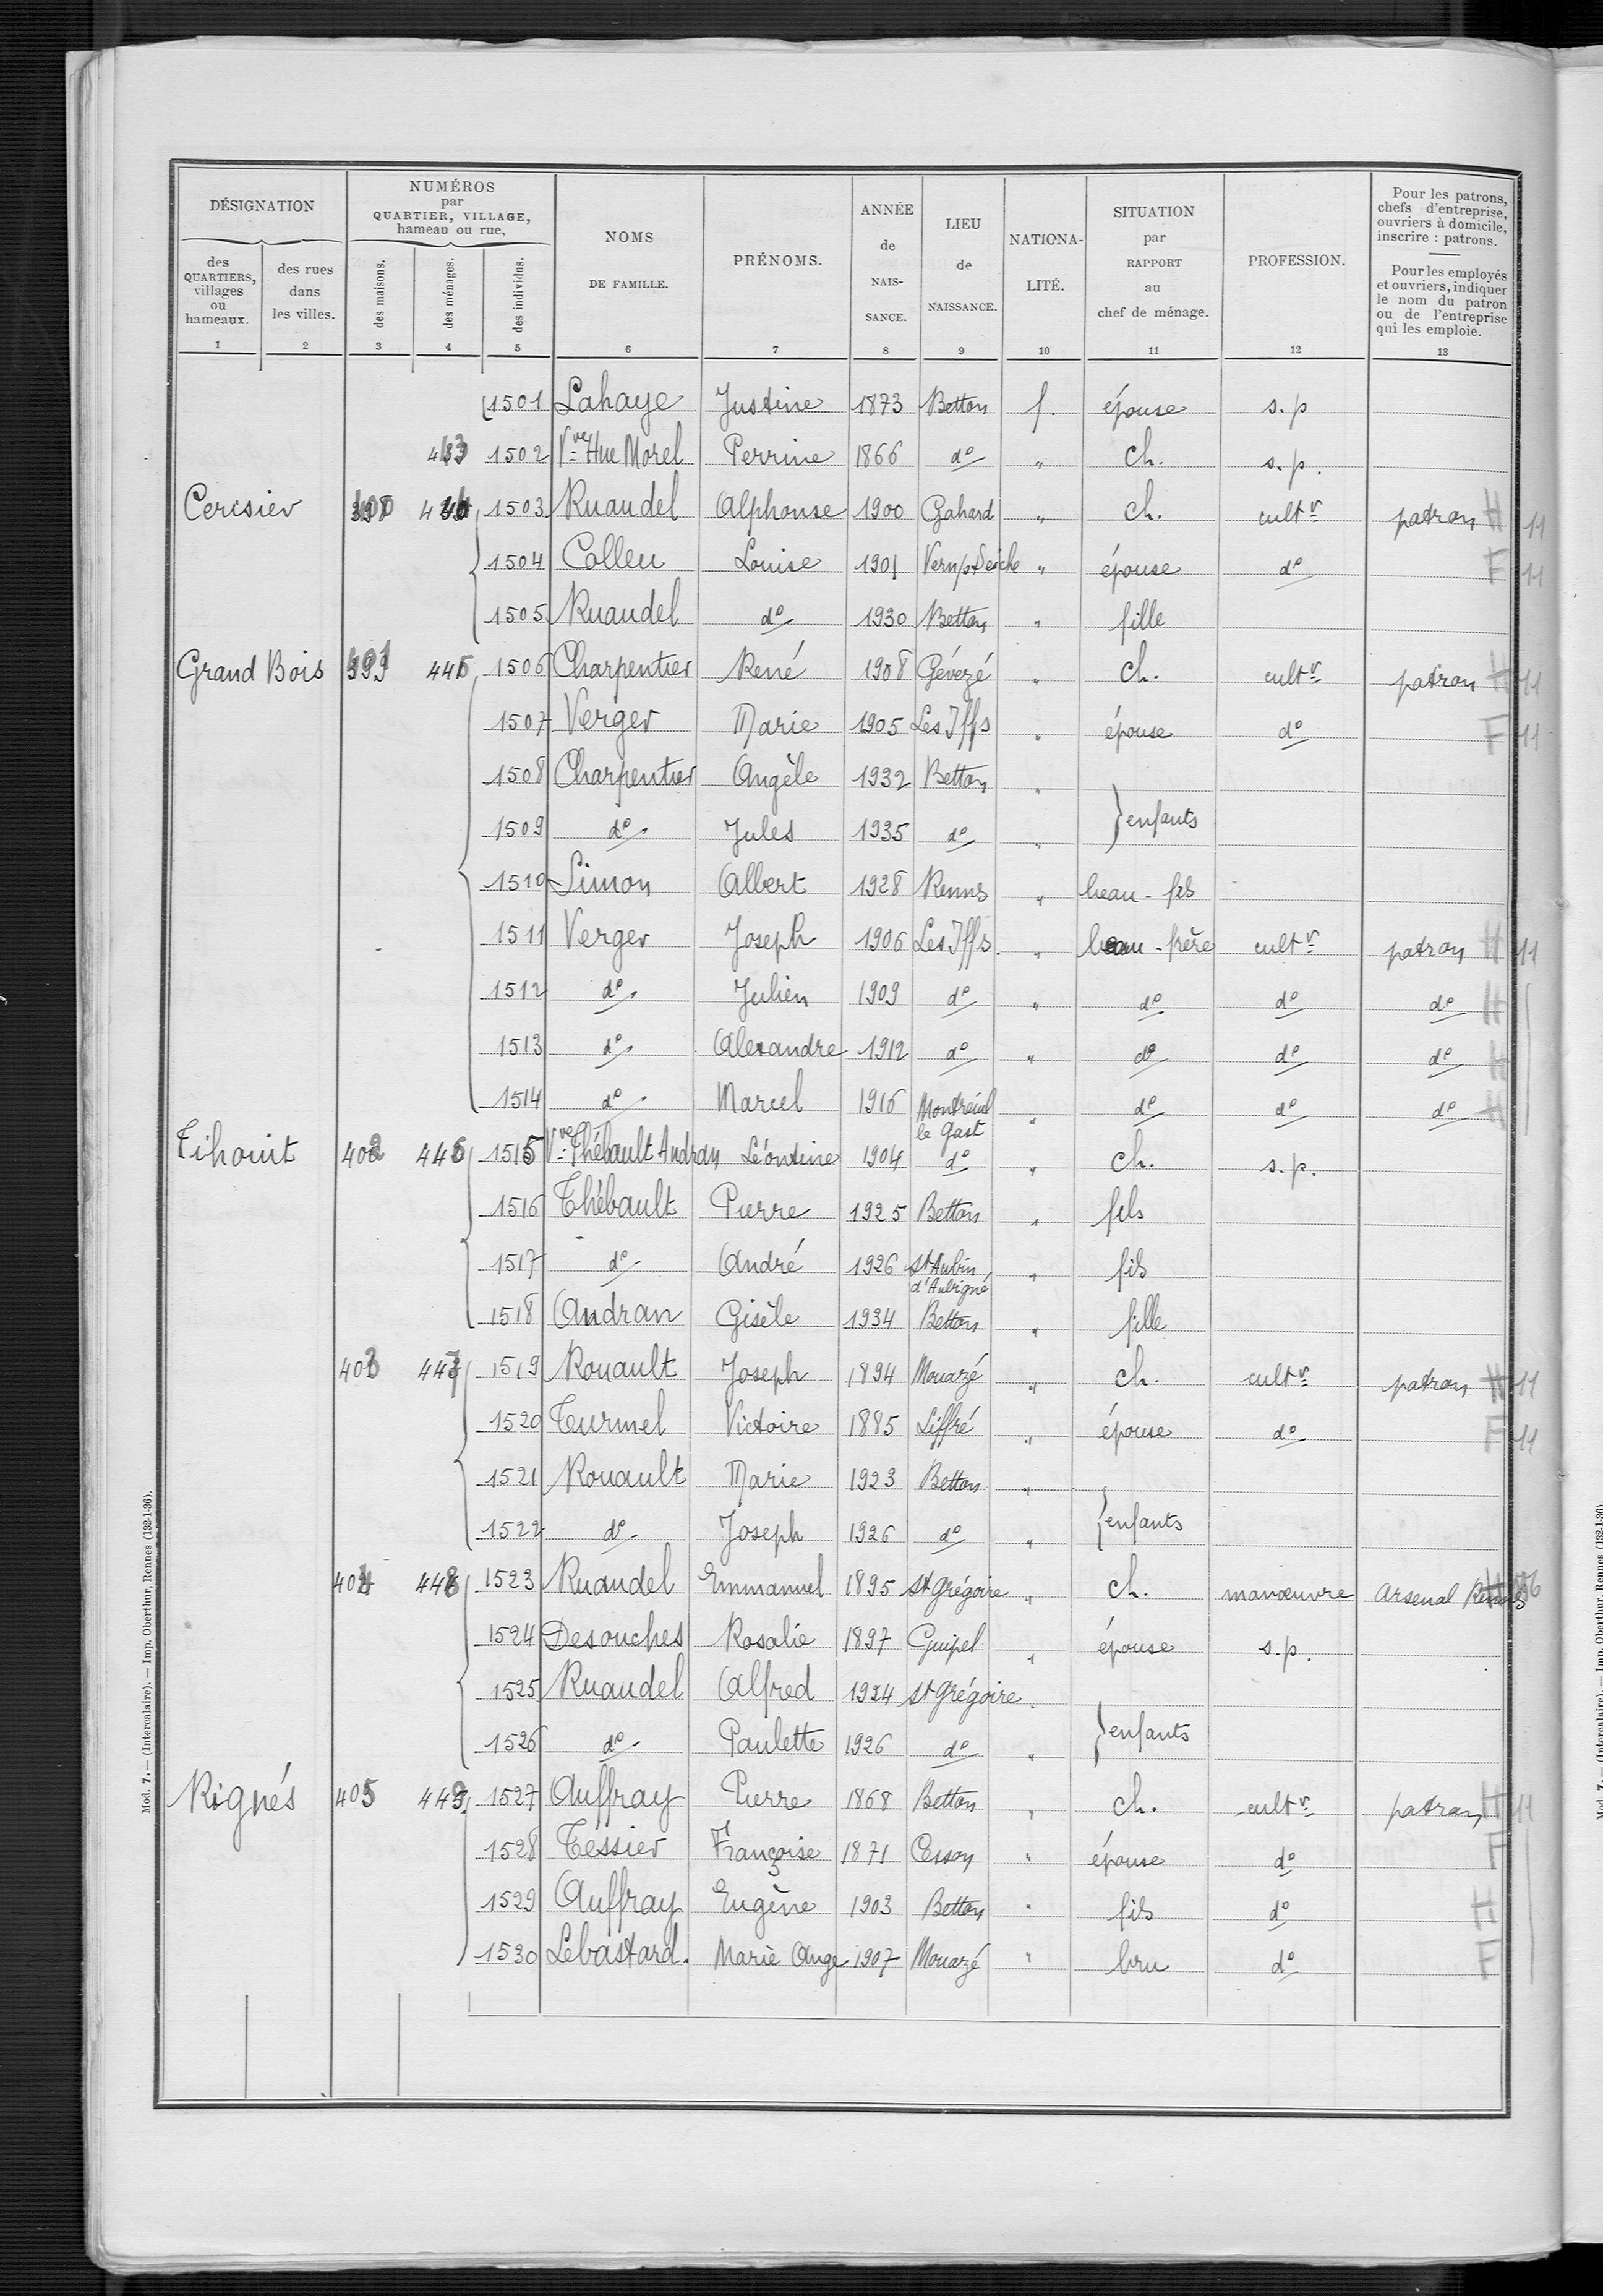 DÉSIGNATION
des QUARTIERS, villages ou hameaux.
des rues dans les villes.
NUMÉROS par QUARTIER, VILLAGE, hameau ou rue.
des maisons.
des ménages.
des individus.
NOMS DE FAMILLE.
PRÉNOMS.
ANNÉE de NAIS-SANCE.
LIEU de NAISSANCE.
NATIONA-LITÉ.
SITUATION par RAPPORT au chef de ménage.
PROFESSION.
Pour les patrons, chefs d'entreprise, ouvriers à domicile, inscrire : patrons.
Pour les employés et ouvriers, indiquer le nom du patron ou de l'entreprise qui les emploie.
1 2 3 4 5 6 7 8 9 10 11 12 13
1501 Lahaye Justine 1873 Betton f. épouse s.p
443 1502 Vve Hue Morel Perrine 1866 do " ch. s.p.
Cerisier 400 444 1503 Ruaudel Alphonse 1900 Gahard " ch. cultr patron H 11
1504 Colleu Louise 1901 Vern s/ Seiche " épouse do F 11
1505 Ruaudel do 1930 Betton " fille
Grand Bois 401 445 1506 Charpentier René 1908 Gévezé " ch. cultr patron H 11
1507 Verger Marie 1905 Les Iffs " épouse do F 11
1508 Charpentier Angèle 1932 Betton "
1509 do Jules 1935 do " enfants
1510 Simon Albert 1928 Rennes " beau-fils
1511 Verger Joseph 1906 Les Iffs " beau-frère cultr patron H 11
1512 do Julien 1909 do " do do do H
1513 do Alexandre 1912 do " do do do H
1514 do Marcel 1916 Montreuil le Gast " do do do H
Tihouit 402 446 1515 Vve Thébault Andran Léontine 1904 do " ch. s.p.
1516 Thébault Pierre 1925 Betton " fils
1517 do André 1926 St Aubin d'Aubigné " fils
1518 Andran Gisèle 1934 Betton " fille
403 447 1519 Rouault Joseph 1894 Mouazé " ch. cultr patron H 11
1520 Turmel Victoire 1885 Liffré " épouse do F 11
1521 Rouault Marie 1923 Betton "
1522 do Joseph 1926 do " enfants
404 448 1523 Ruaudel Emmanuel 1895 St Grégoire " ch. manœuvre Arsenal Rennes H
1524 Desouches Rosalie 1897 Guipel " épouse s.p.
1525 Ruaudel Alfred 1924 St Grégoire "
1526 do Paulette 1926 do " enfants
Rignés 405 449 1527 Auffray Pierre 1868 Betton " ch. cultr patron H 11
1528 Tessier Françoise 1871 Cesson " épouse do F
1529 Auffray Eugène 1903 Betton " fils do H
1530 Lebastard. Marie Ange 1907 Mouazé " bru do F
Mod. 7. — (Intercalaire). — Imp. Oberthur, Rennes (132-1-36).